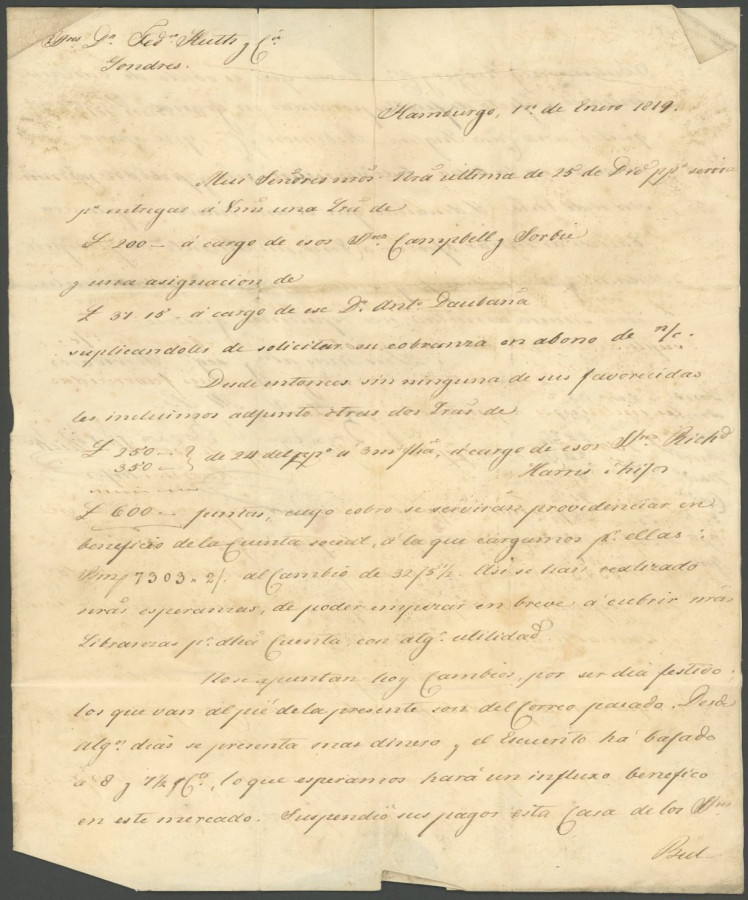 Sres Dn Fedco Huth y Ca
Londres.
Hamburgo, 1ro de Enero 1819.
Mui Señores mos. Nra ultima de 25 de Dice ppo sirvio
pa entregar á Vms una Lra de
£ 200 — á cargo de esos Sres Campbell y Sorbie
y una asignacion de
£ 37.15 - á cargo de ese Dn Anto Daubana
suplicandoles de solicitar su cobranza en abono de n/c.
Desde entonces sin ninguna de sus favorecidas
les incluimos adjunto otras dos Lras de
£ 250 — } de 24 del ppo á 3 m/ fha, á cargo de esos Sres Richd
350 — Harris é hijos
£ 600 — juntas, cuyo cobro se servirán providenciar en
beneficio de la Cuenta social, á la que cargamos pr ellas:
Bm/ 7303 " 2/. al Cambio de 32/5 1/2. Asi se han realizado
nras esperanzas, de poder empezar en breve á cubrir nras
Libranzas pr dha Cuenta, con alga utilidad.
No se apuntan hoy Cambios, por ser dia festivo;
los que van al pié de la presente son del Correo pasado. Desde
algs dias se presenta mas dinero y el Escuento há bajado
á 8 y 7 1/2 p Co, lo que esperamos hará un influxo benefico
en este mercado. Suspendió sus pagos esta Casa de los Sres